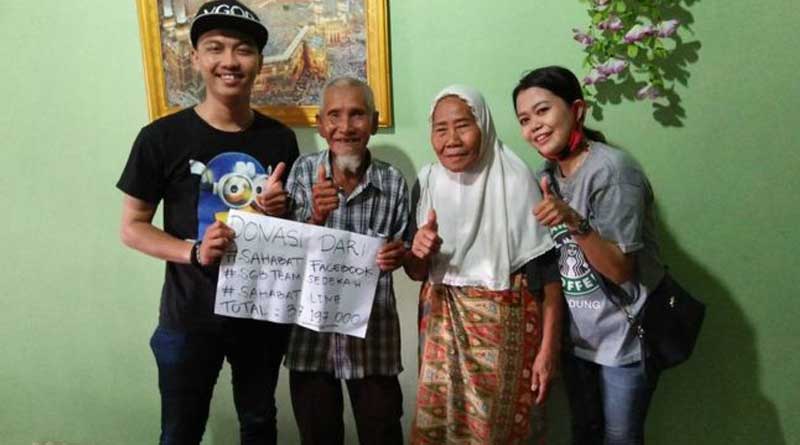 VGOD
DONASI DARI
#-SAHABAT FACEBOOK
#-SGB TEAM SEDEKAH
#-SAHABAT LINE
TOTAL : 37.197.000
COFFEE